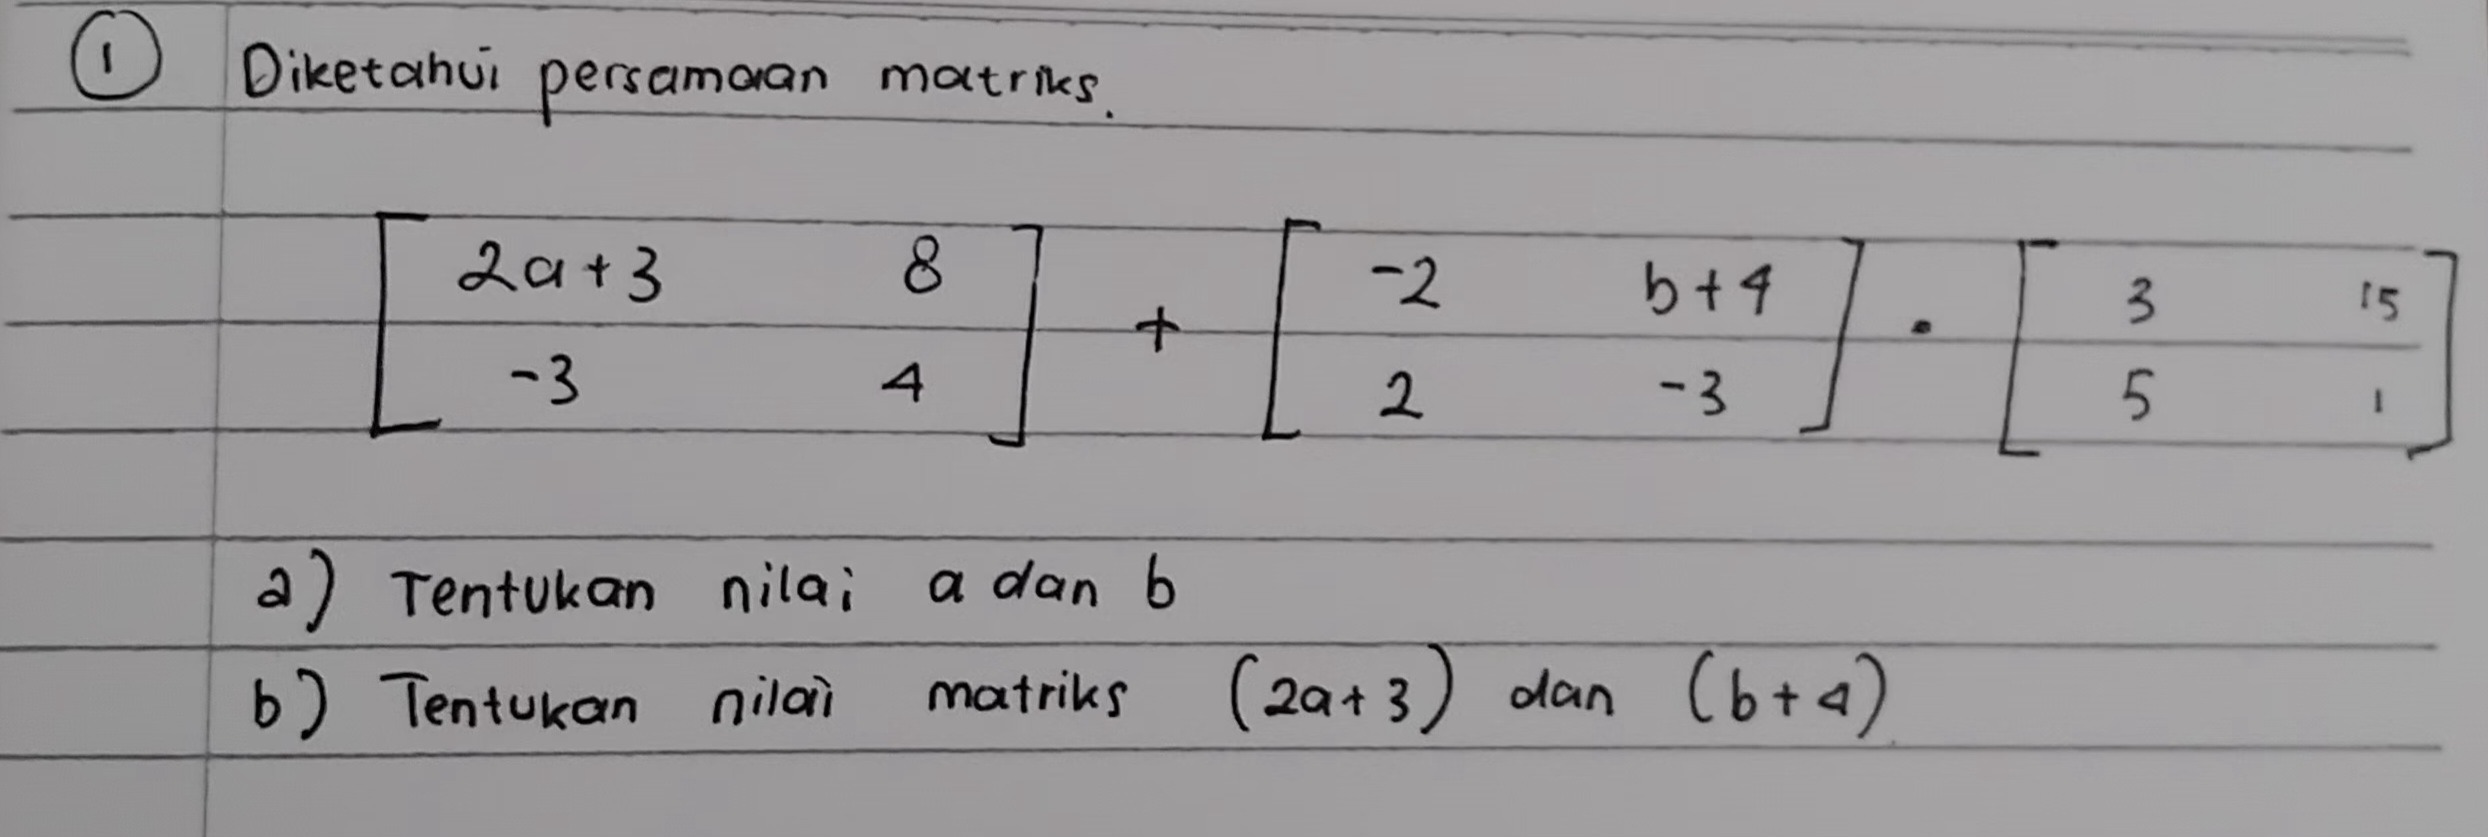 1 Diketahui persamaan matriks.
[ 2a+3 8 ] + [ -2 b+4 ] . [ 3 15 ]
[ -3 4 ] [ 2 -3 ] [ 5 1 ]
a) Tentukan nilai a dan b
b) Tentukan nilai matriks (2a+3) dan (b+4)